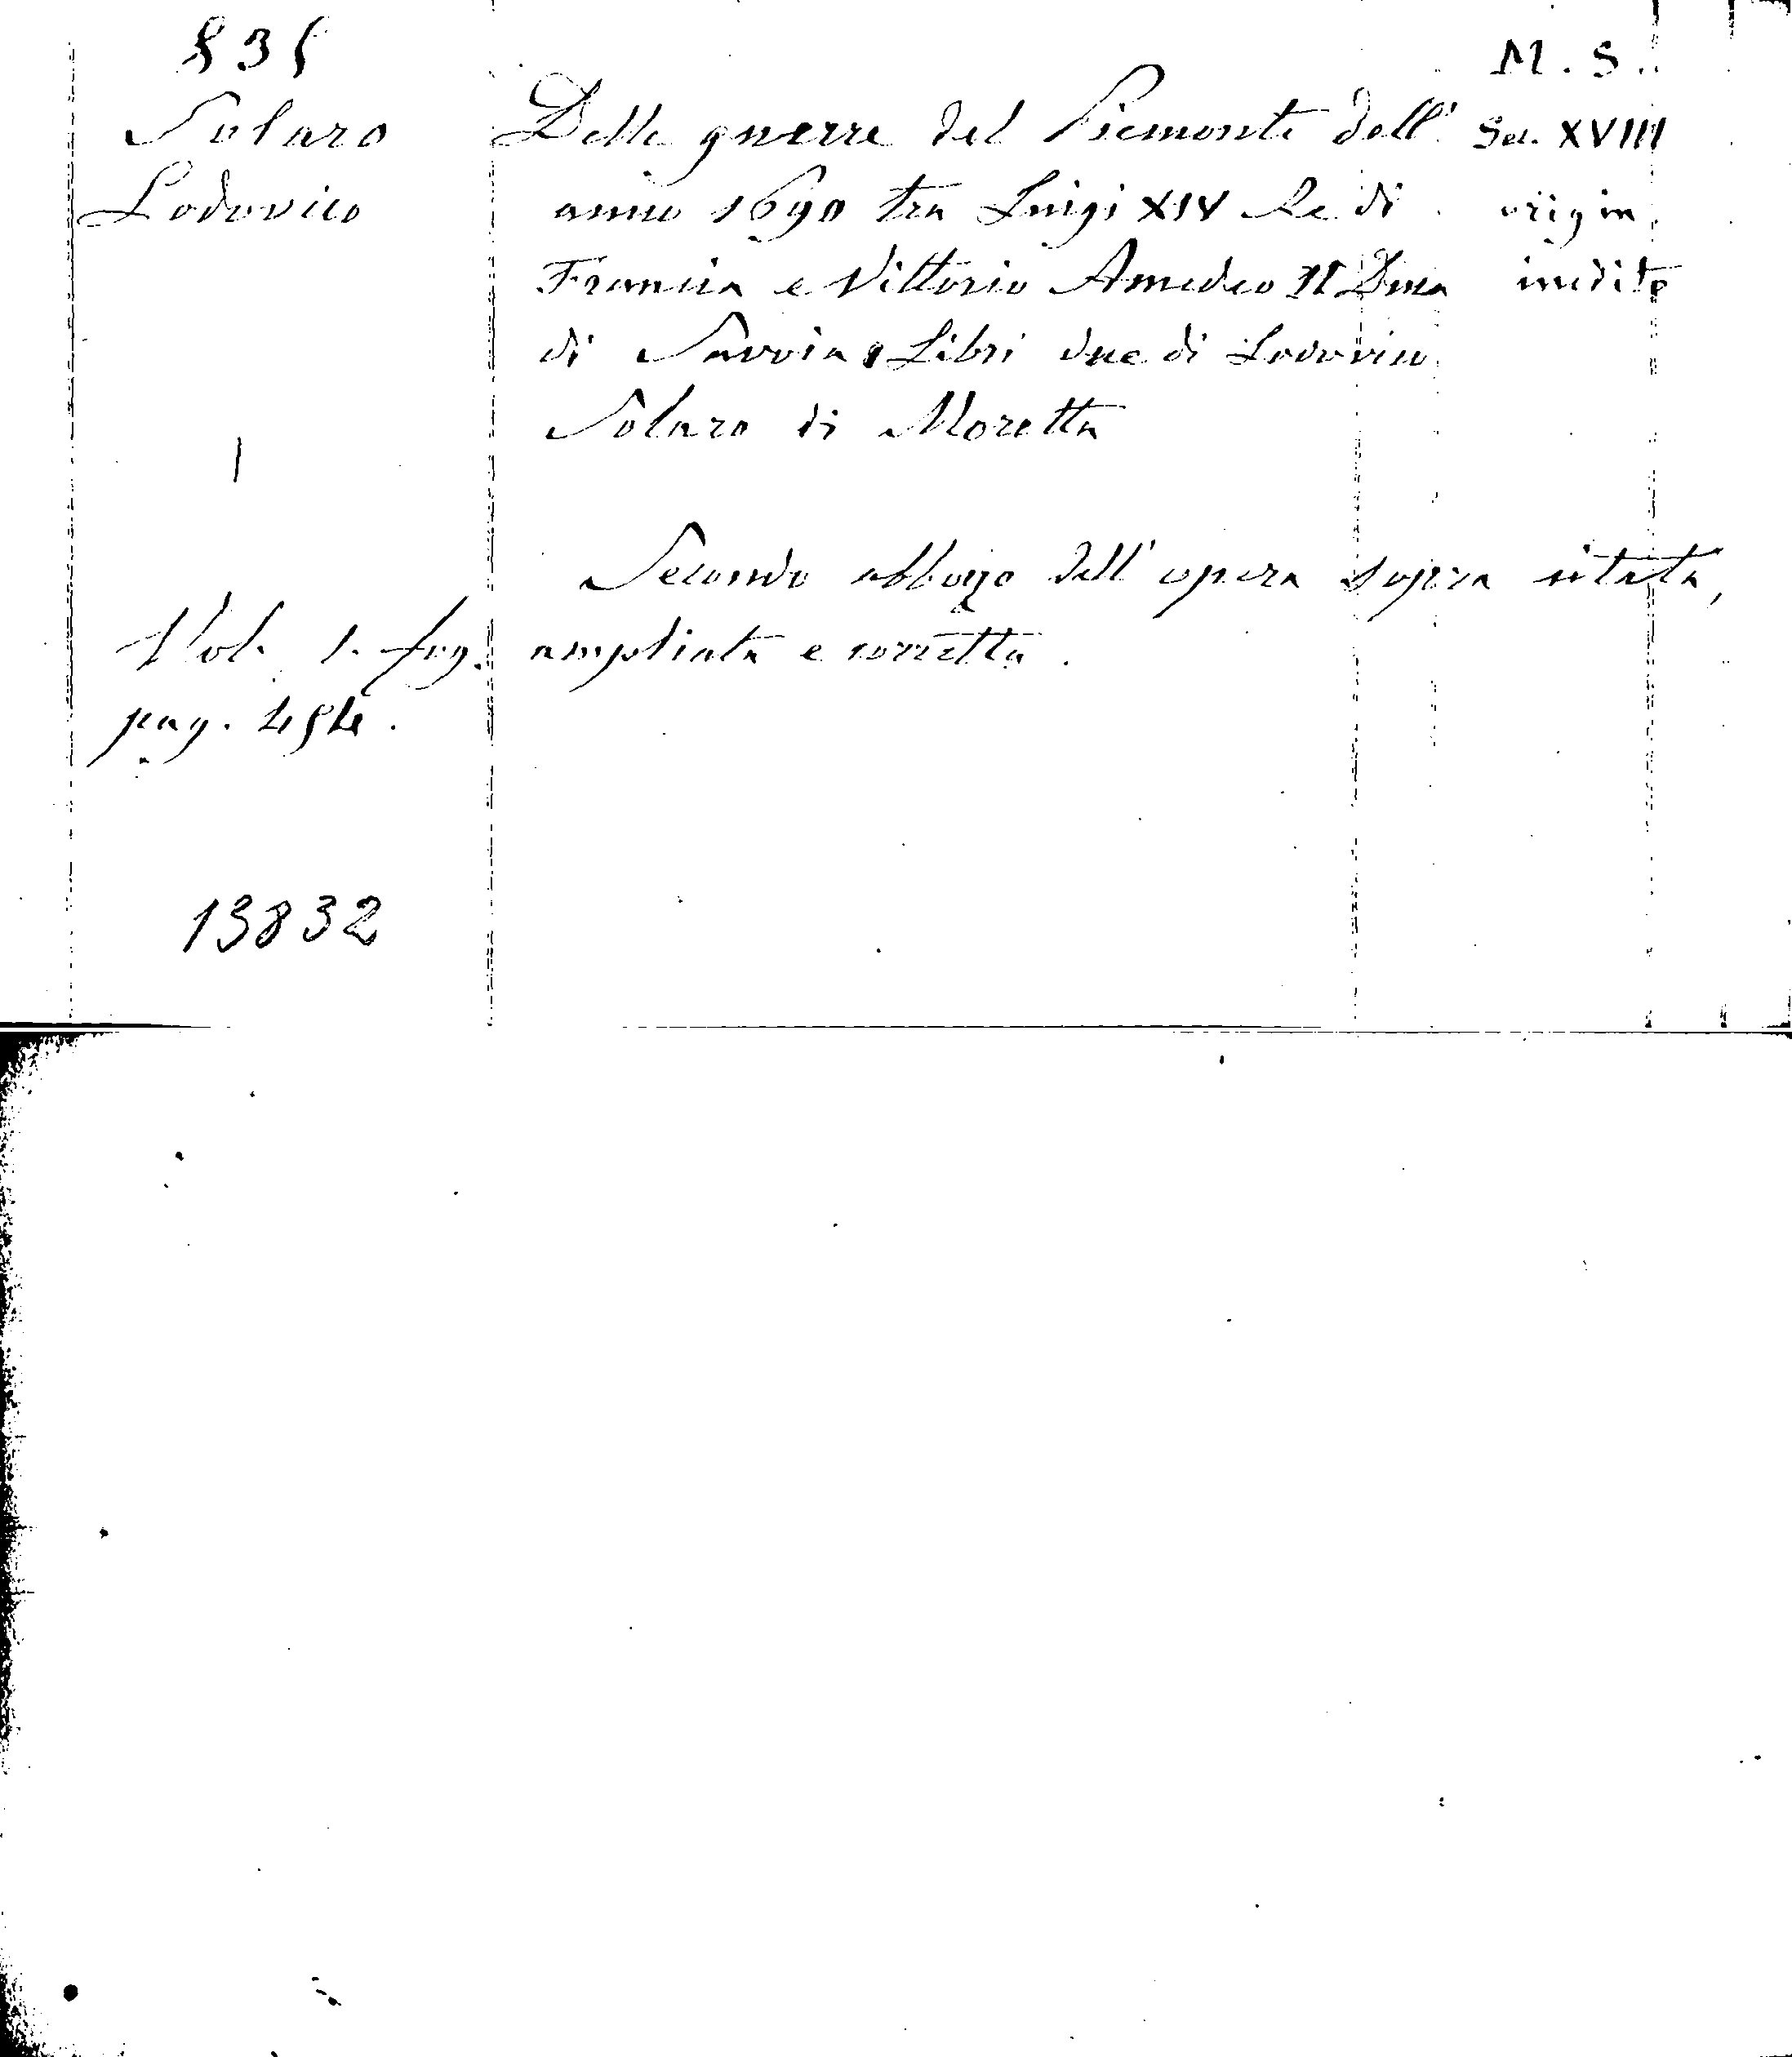 835
M. S.
Solaro
Lodovico
Delle guerre del Piemonte dell'
anno 1690 tra Luigi XIV Re di
Francia e Vittorio Amedeo II Duca
di Savoia Libri due di Lodovico
Solaro di Moretta
Sec. XVIII
origin.
inedito
Secondo abbozzo dell' opera sopra citata,
ampliata e corretta.
Vol. 1. fog.
pag. 454.
13832